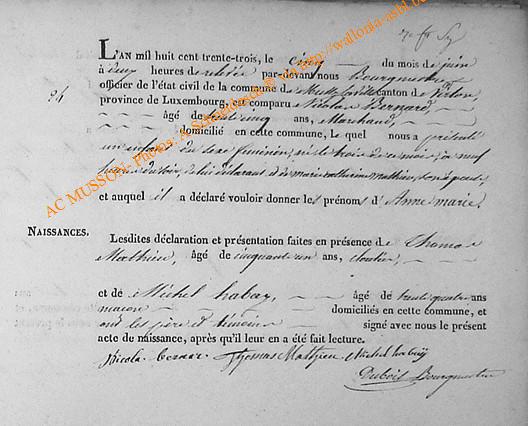 24
L'AN mil huit cent trente-trois, le cinq du mois de juin
à deux heures de relevée par-devant nous Bourgmestre
officier de l'état civil de la commune de canton de Virton,
province de Luxembourg, est comparu Nicolas Bernard,
âgé de cinq ans, Marchand,
domicilié en cette commune, Le quel nous a présenté
un enfant du sexe féminin, né le trois de ce mois, à neuf
heures du soir, de lui déclarant et de marie catherine mathieu, son épouse,
et auquel il a déclaré vouloir donner les prénoms d'Anne marie,
NAISSANCES.
Lesdites déclaration et présentation faites en présence de Thomas
Mathieu, âgé de cinquante un ans, cloutier,
et de Michel habay, âgé de trente quatre ans
macon domiciliés en cette commune, et
ont les père et témoins signé avec nous le présent
acte de naissance, après qu'il leur en a été fait lecture.
Nicola Thomas Mathieu Michel habay
Dubois Bourgmestre
AC MUSSON. Photos: A Schmidbach © dx http://wallonia-asbl.be